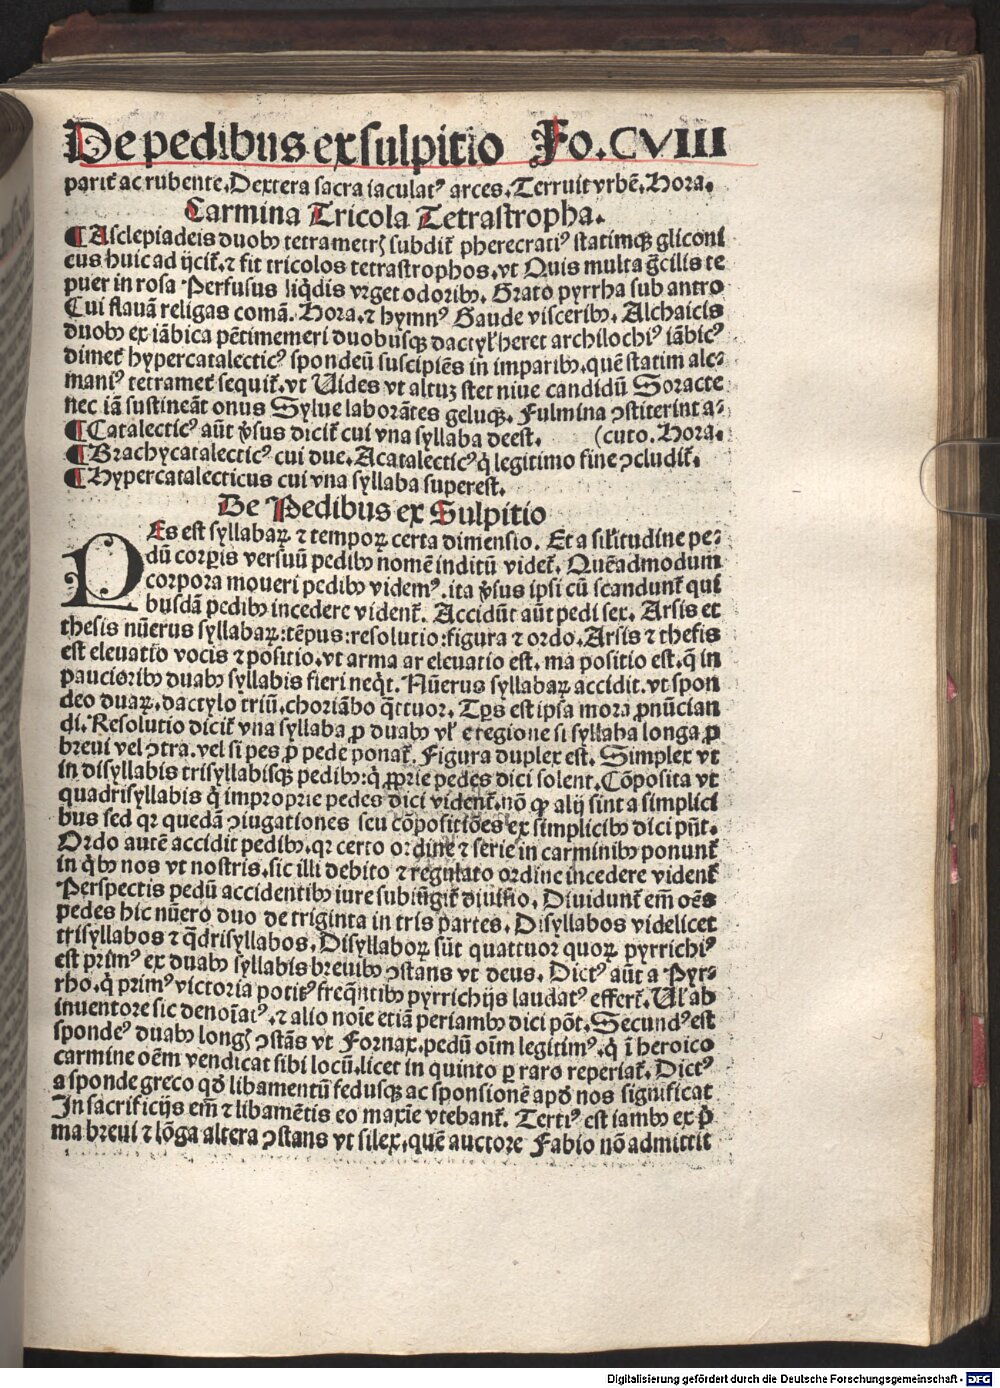 De pedibus ex sulpitio Fo. CVIII
parit̄ ac rubente. Dextera sacra iaculatꝰ arces. Terruit vrbē. Hora.
Carmina Tricola Tetrastropha.
¶ Asclepiadeis duobꝫ tetrametrꝭ subdit̄ pherecratiꝰ statimqꝫ gliconi
cus huic adijcit̄. ⁊ fit tricolos tetrastrophos. vt Quis multa g̃cilis te
puer in rosa Perfusus liq̇dis vrget odoribꝫ. Grato pyrrha sub antro
Cui flauā religas comā. Hora. ⁊ hymnꝰ Gaude visceribꝫ. Alchaicis
duobꝫ ex iābica pētimemeri duobusqꝫ dactyl̓ heret archilochiꝰ iābicꝰ
dimet̄ hypercatalecticꝰ spondeū suscipiēs in imparibꝫ. quē statim alc⸗
maniꝰ tetramet̄ sequit̄. vt Uides vt altuꝫ stet niue candidū Soracte
nec iā sustineāt onus Sylue laborātes geluqꝫ. Flumina ꝯstiterint a⸗
¶ Catalecticꝰ aūt v̓sus dicit̄ cui vna syllaba deest. (cuto. Hora.
¶ Brachycatalecticꝰ cui due. Acatalecticꝰ q̇ legitimo fine ꝯcludit̄.
¶ Hypercatalecticus cui vna syllaba superest.
De Pedibus ex Sulpitio
PEs est syllabaꝝ ⁊ tempoꝝ certa dimensio. Et a sil̓itudine pe⸗
dū corꝑis versuū pedibꝫ nomē inditū videt̄. Quēadmodum
corpora moueri pedibꝫ videmꝰ. ita v̓sus ipsi cū scandunt̄ qui
busdā pedibꝫ incedere vident̄. Accidūt aūt pedi sex. Arsis et
thesis nūerus syllabaꝝ: tēpus: resolutio: figura ⁊ ordo. Arsis ⁊ thesis
est eleuatio vocis ⁊ positio. vt arma ar eleuatio est. ma positio est. q̄ in
paucioribꝫ duabꝫ syllabis fieri neq̇t. Nūerus syllabaꝝ accidit. vt spon
deo duaꝝ. dactylo triū. choriābo q̄ttuor. Tꝑs est ipsa mora ꝓnūcian
di. Resolutio dicit̄ vna syllaba ꝓ duabꝫ vl̓ e regione si syllaba longa ꝓ
breui vel ꝯtra. vel si pes ꝓ pede ponat̄. Figura duplex est. Simplex vt
in disyllabis trisyllabisqꝫ pedibꝫ: q̇ ꝓprie pedes dici solent. Cōposita vt
quadrisyllabis q̇ improprie pedes dici vident̄. nō ꝙ alij sint a simplici
bus sed qꝛ quedā ꝯiugationes seu cōpositiōes ex simplicibꝫ dici pn̄t.
Ordo autē accidit pedibꝫ. qꝛ certo ordine ⁊ serie in carminibꝫ ponunt̄
in q̇bꝫ nos vt nostris. sic illi debito ⁊ regulato ordine incedere vident̄
Perspectis pedū accidentibꝫ iure subiūgit̄ diuisio. Diuidunt̄ em̄ oēs
pedes hic nūero duo de triginta in tris partes. Disyllabos videlicet
trisyllabos ⁊ q̄drisyllabos. Disyllaboꝝ sūt quattuor quoꝝ pyrrichiꝰ
est primꝰ ex duabꝫ syllabis breuibꝫ ꝯstans vt deus. Dictꝰ aūt a Pyr⸗
rho. q̇ primꝰ victoria potitꝰ freq̄ntibꝫ pyrrichijs laudatꝰ effert̄. Ul̓ ab
inuentore sic denoīatꝰ. ⁊ alio noīe etiā periambꝫ dici pōt. Secundꝰ est
spondeꝰ duabꝫ longꝭ ꝯstās vt Fornax. pedū oīm legitimꝰ. q̇ ī heroico
carmine oēm vendicat sibi locū. licet in quinto ꝑ raro reperiat̄. Dictꝰ
a sponde greco qđ libamentū fedusqꝫ ac sponsionē apđ nos significat
In sacrificijs em̄ ⁊ libamētis eo maxīe vtebant̄. Tertiꝰ est iambꝫ ex p̄
ma breui ⁊ lōga altera ꝯstans vt silex. quē auctore Fabio nō admittit